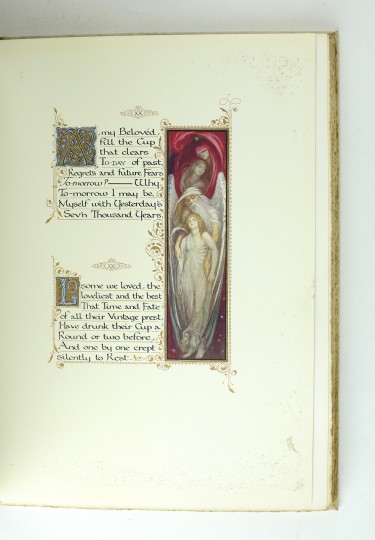 XX
Ah my Beloved
fill the Cup
that clears
To-day of past
Regrets and future Fears
To-morrow?—Why,
To-morrow I may be,
Myself with Yesterday's
Sev'n Thousand Years.
XXI
Lo some we loved, the
loveliest and the best
That Time and Fate
of all their Vintage prest,
Have drunk their Cup a
Round or two before,
And one by one crept
silently to Rest.